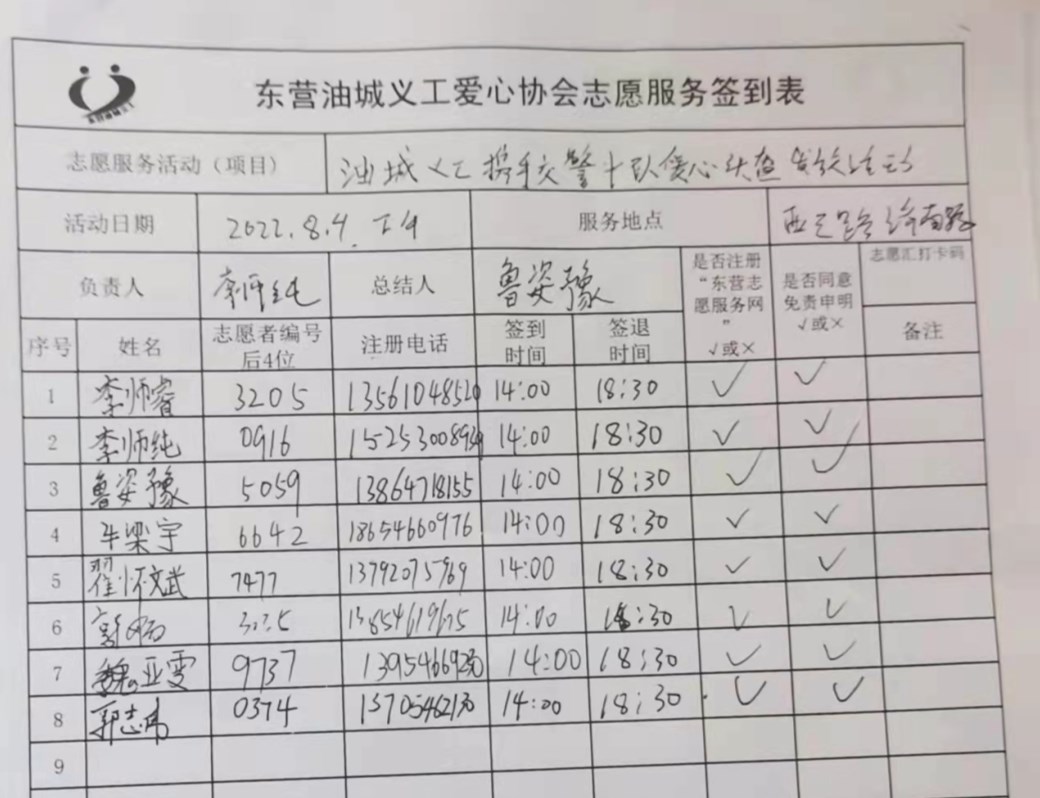 东营油城义工爱心协会志愿服务签到表
志愿服务活动（项目） 油城义工携手交警十队爱心
活动日期 2022.8.4.下午 服务地点 西三路济南路
负责人 李师纯 总结人 鲁姿豫 是否注册“东营志愿服务网” √或× 是否同意免责申明 √或× 志愿汇打卡码
序号 姓名 志愿者编号后4位 注册电话 签到时间 签退时间 备注
1 李师睿 3205 13561048520 14:00 18:30 √ √
2 李师纯 0916 14:00 18:30 √ √
3 鲁姿豫 5059 13864718155 14:00 18:30 √ √
4 牛梁宇 6642 18654660976 14:00 18:30 √ √
5 翟怀文武 7477 13792075769 14:00 18:30 √ √
6 14:00 18:30 √ √
7 魏亚雯 9737 14:00 18:30 √ √
8 郭志伟 0374 14:00 18:30 √ √
9